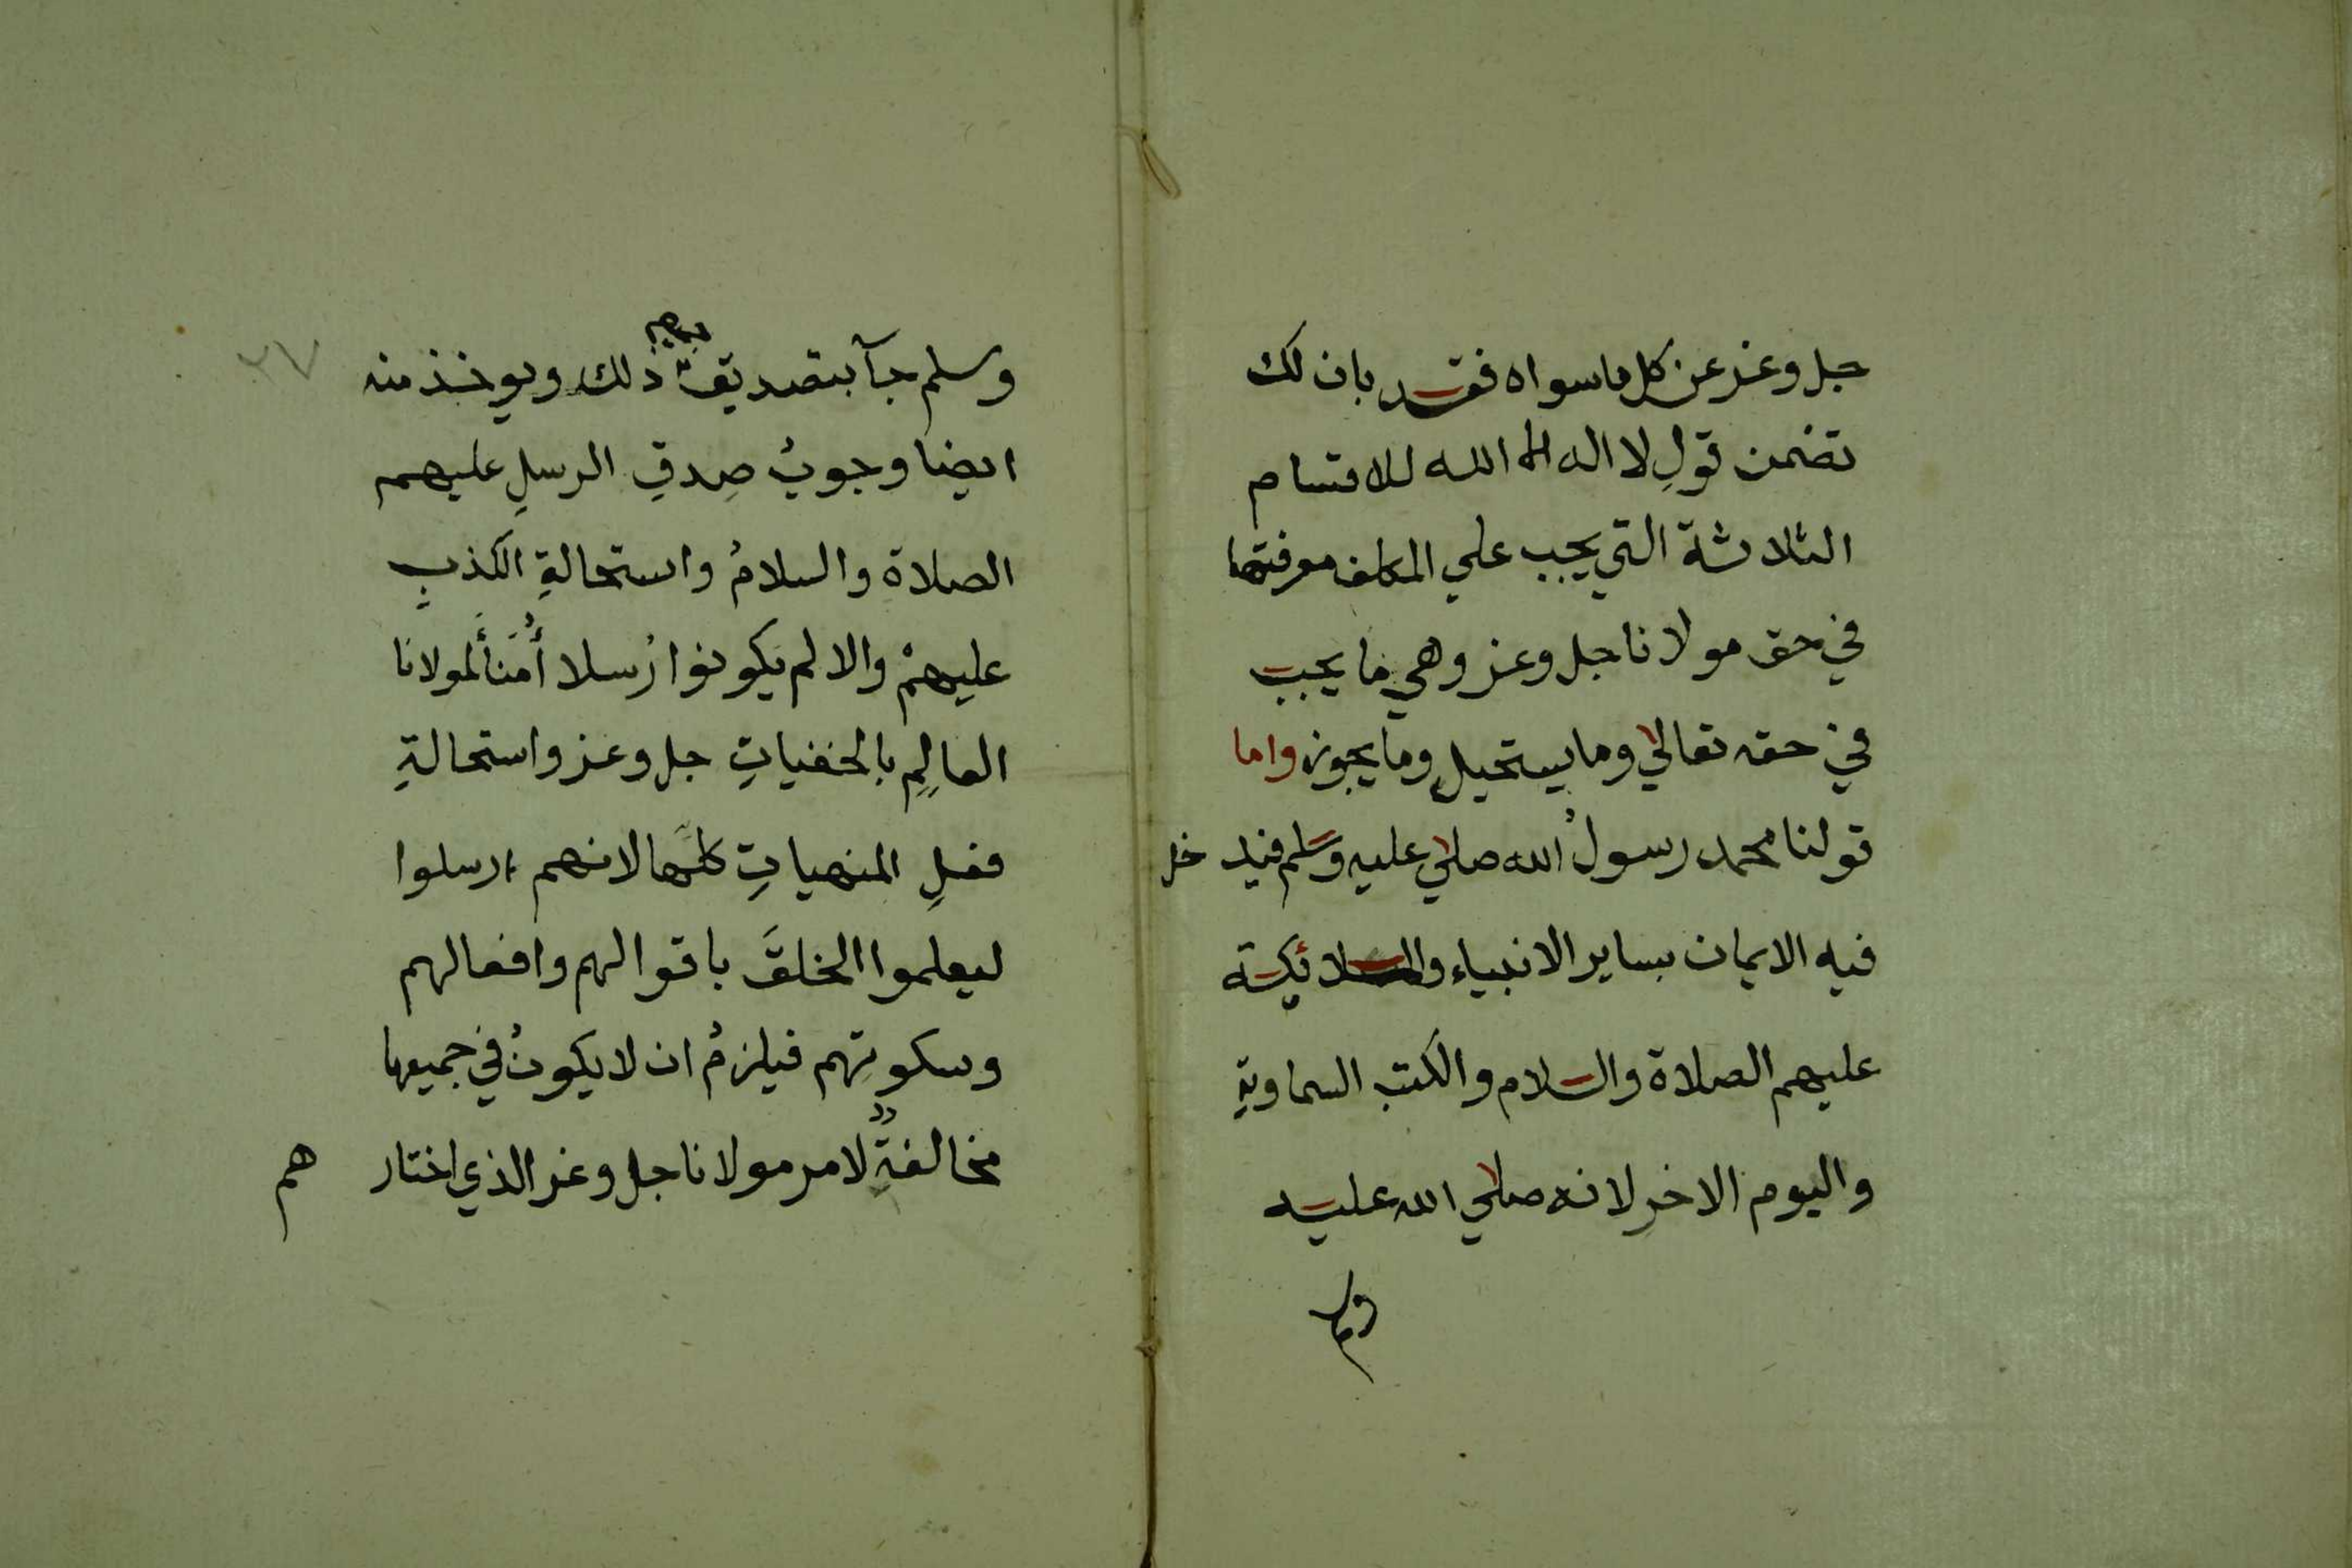 جل وعز عن كل ما سواه فقد بان لك
تضمن قولِ لا اله الا الله للاقسام
الثلاثة التي يجب علي المكلف معرفتها
في حق مولانا جل وعز وهي ما يجب
في حقه تعالي وما يستحيل وما يجوز واما
قولنا محمد رسولُ الله صلي عليه وسلم فيدخل
فيه الايمان بساير الانبياء والملائكة
عليهم الصلاة والسلام والكتب السماوية
واليوم الاخرِ لانه صلي الله عليه
وسلم
٢٧
وسلم جآ بتصديق جميع ذلك ويوخذ منه
ايضا وجوبُ صِدقِ الرسلِ عليهم
الصلاة والسلامُ واستحالةِ الكذبِ
عليهمْ والا لم يكونوا رُسلا أُمَنأَ لمولانا
العالِمِ بالخفياتِ جل وعز واستحالةِ
فعلِ المنهياتِ كلِّها لانهم ارسلوا
ليعلموا الخلقَ باقوالهم وافعالهم
وسكوتِهم فيلزمُ ان لا يكونُ في جميعها
مخالفةً لامر مولانا جل وعز الذي اختارهم